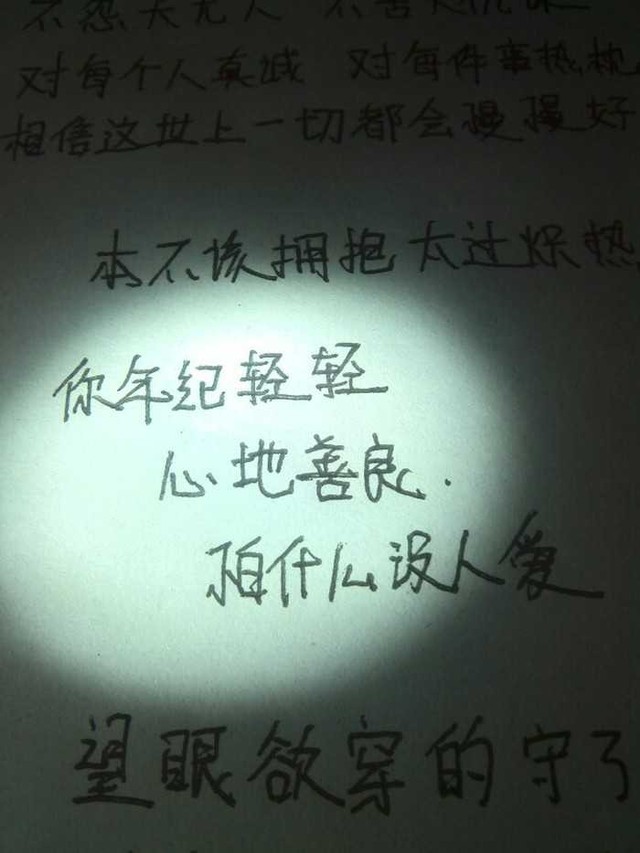 不怨天尤人 不
对每个人真诚 对每件事热忱
相信这世上一切都会慢慢好
本不该拥抱太过炽热
你年纪轻轻
心地善良.
怕什么没人爱
望眼欲穿的守了